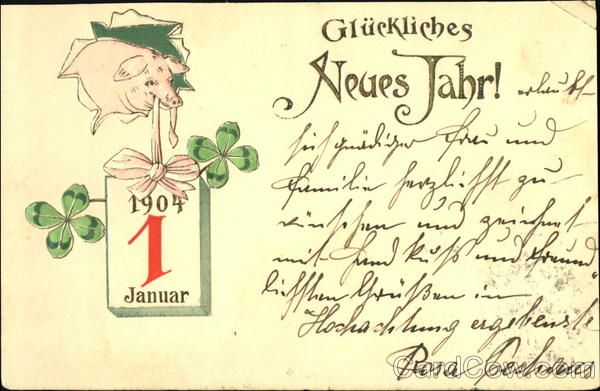 Glückliches
Neues Jahr! erlaubt
sich gnädiger Frau und
Familie herzlichst zu
wünschen und zeichnet
mit Handkuss und freund
lichsten Grüßen in
Hochachtung ergebenste
1904
1
Januar
CardCow.com